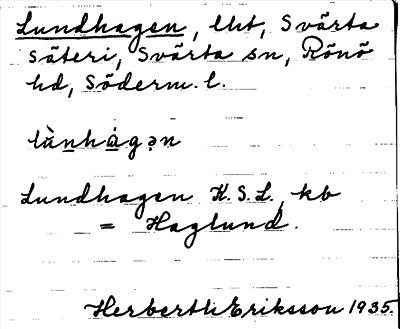 Lundhagen, lht, Svärta
säteri, Svärta sn, Rönö
hd, Söderm. l.
lùnhȧgən
Lundhagen K.S.L. kb
= Haglund.
Herberth Eriksson 1935.